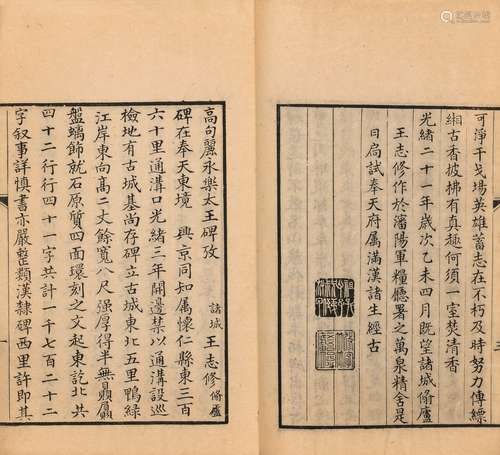 可淨干戈場英雄蓄志在不朽及時努力傳縹
緗古香披拂有真趣何須一室焚清香
光緒二十一年歲次乙未四月既望諸城脩廬
王志修作於瀋陽軍糧廳署之萬泉精舍是
日局試奉天府属滿漢諸生經古
高句麗永樂太王碑攷
諸城王志修脩廬
碑在奉天東境興京同知属懷仁縣東三百
六十里通溝口光緒三年開邊禁以通溝設巡
檢地有古城基尚存碑立古城東北五里鴨綠
江岸東向高二丈餘寬八尺强厚得半無贔屭
盤螭飾就石原質四面環刻之文起東訖北共
四十二行行四十一字共計一千七百二十二
字叙事詳慎書亦嚴整類漢隸碑西里許即其